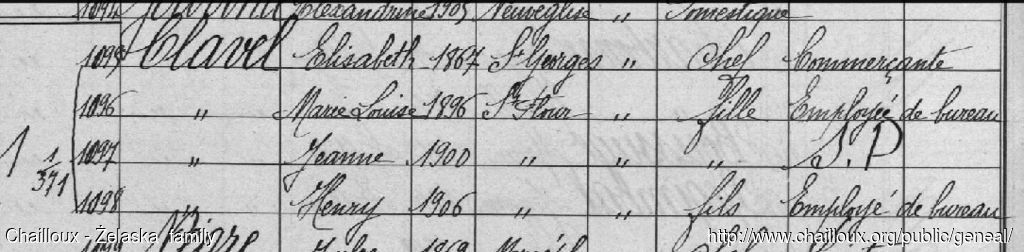 1094 Alexandrine 1905 Neuvéglise " Domestique
1095 Clavel Elisabeth 1867 St Georges " Chef Commerçante
1096 " Marie Louise 1896 St Flour " fille Employée de bureau
1 1/371 1097 " Jeanne 1900 " " " S.P
1098 " Henry 1906 " " fils Employé de bureau
Jules 1869
Chailloux - Želaska family http://www.chailloux.org/public/geneal/